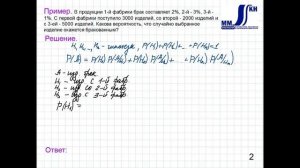 Пример. В продукции 1-й фабрики брак составляет 2%, 2-й - 3%, 3-й -
1%. С первой фабрики поступило 3000 изделий, со второй - 2000 изделий и
с 3-ей - 5000 изделий. Какова вероятность, что случайно выбранное
изделие окажется бракованным?
Решение.
A - изд. брак
H₁ - изд. с 1-ой фабр.
H₂ - изд. со 2-ой фабр.
H₃ - изд. с 3-ей фабр.
P(H₁) =
Ответ:
2